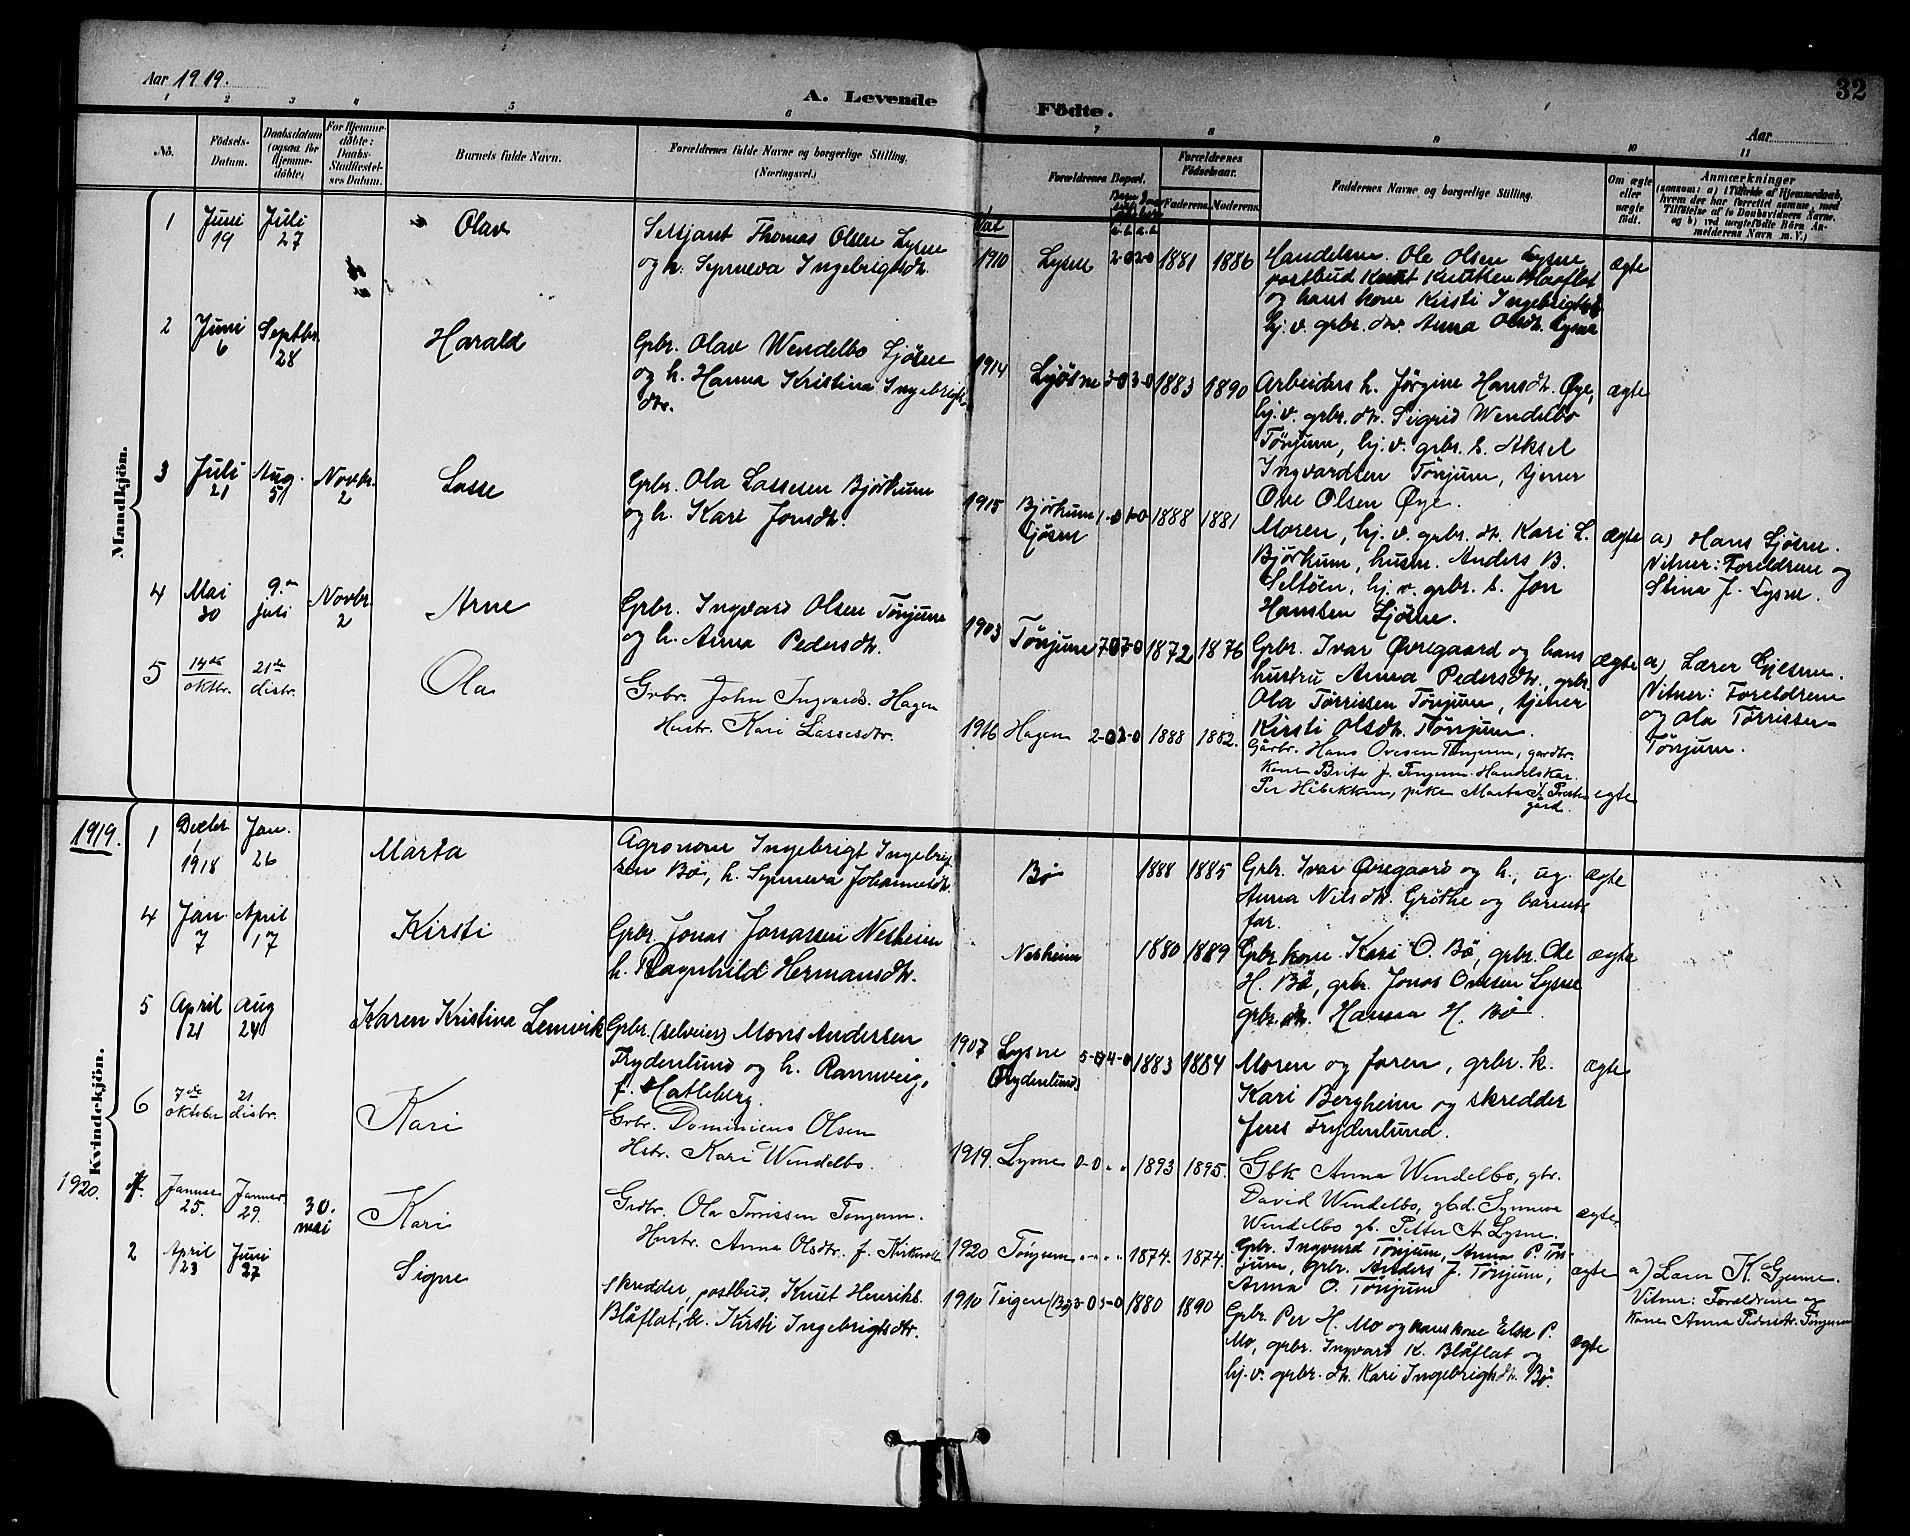 Aar 1919.
A. Levende
Födte.
32
Aar
1 2 3 4 5 6 7 8 9 10 11
No.
Födsels-
Datum.
Daabsdatum
(ogsaa for
Hjemme-
döbte)
For Hjemme-
döbte:
Daabs-
Stadfæstel-
ses Datum.
Barnets fulde Navn.
Forældrenes fulde Navne og borgerlige Stilling.
(Næringsvei.)
Forældrenes Bopæl.
Forældrenes
Födselsaar.
Faderens.
Moderens.
Faddernes Navne og borgerlige Stilling.
Om ægte
eller
uægte
födt.
Anmærkninger
(saasom: a) i Tilfælde af Hjemmedaab,
hvem der har forrettet samme, med
Tilföielse af to Daabsvidners Navne,
og b) ved uægtefödte Börn An-
melderens Navn m. V.)
Mandkjön.
1 Juni 19 Juli 27 Olav
Sersjant Thomas Olsen Lysne
og h. Synneva Ingebrigtsdtr.
1910 Lysne 2-0 2-0 1881 1886
Handelsm. Ole Olsen Lysne,
postbud Knut Knutsen Blaaflat
og hans kone Kirsti Ingebrigtsd.
hj. v. grbr. dtr. Anna Olsdtr. Lysne
ægte
2 Juni 6 Septbr. 28 Harald
Grbr. Olav Wendelbo Ljösne
og h. Hanna Kristina Ingebrigts
dtr.
1914 Ljøsne 3-0 3-0 1883 1890
Arbeiders h. Jörgine Hansdtr. Øye,
hj. v. grbr. dtr. Sigrid Wendelbo
Tönjum, hj. v. grbr. s. Aksel
Ingvardsen Tönjum, tjener
Ove Olsen Øye.
ægte
3 Juli 21 Aug. 5 Novbr. 2 Lasse
Grbr. Ola Lassesen Björkum
og h. Kari Jonsdtr.
1915 Björkum
Ljösne 1-0 1-0 1888 1881
Moren, hj. v. grbr. dtr. Kari L.
Björkum, husm. Anders B.
Seltöen, hj. v. grbr. s. Jon
Hanssen Ljösne.
ægte
a) Hans Ljösne.
Vitner: Foreldrene og
Stina J. Lysne.
4 Mai 30 9. juli Novbr. 2 Arne
Grbr. Ingvard Olsen Tönjum
og h. Anna Pedersdtr.
1903 Tönjum 7-0 7-0 1872 1876
Grbr. Ivar Øvregaard og hans
hustru Anna Pedersdtr., grbr.
Ola Tørrissen Tönjum, tjener
Kirsti Olsdtr. Tönjum.
ægte
a) Lærer Gjesme.
Vitner: Foreldrene
og Ola Tørrissen
Tönjum.
5 14de oktbr. 21de disbr. Ola
Grbr. John Ingvards. Hagen
Hustr. Kari Lassesdtr.
1916 Hagen 2-0 2-0 1888 1882.
Gårbr. Hans Ovesen Tönjum, gardbr.
Kone Brita J. Tönjum. Handelskar
Per Håbakken, pike Marta J. Preste
gård.
egte
Kvindekjön.
1919.
1 Decbr 1 1918 Jan. 26 Marta
Agronom Ingebrigt Ingebrigt
sen Bø, h. Synneva Johannesdtr.
Bö 1888 1885
Grbr. Ivar Øvregaard og h., ug.
Anna Nilsdtr. Gröthe og barnets
far.
ægte
4 Jan. 7 April 17 Kirsti
Grbr. Jonas Jonassen Nesheim
h. Ragnhild Hermansdtr.
Nesheim 1880 1889
Grbr kone Kari O. Bö, grbr. Ole
H. Bö, grbr. Jonas Ovesen Lysne
grbr. dtr. Hanna H. Bö.
ægte
5 April 21 Aug 24 Karen Kristina Lemvik
Grbr. (selveier) Mons Andersen
Frydenlund og h. Rannveig,
f. Hatleberg.
1907 Lysne
(Frydenlund) 5-0 4-0 1883 1884
Moren og faren, grbr. k.
Kari Bergheim og skredder
Jens Frydenlund.
ægte
6 7de oktober 21 disbr. Kari
Grbr. Dominicus Olsen
Hstr. Kari Wendelbo.
1919. Lysne 0-0 " " 1893 1895.
Gbk Anna Wendelbo, gbr.
David Wendelbo, gbd. Synneva
Wendelbo gb. Petter A. Lysne.
ægte
1920.
1. Januar 25. Januar 29. 30. mai Kari
Grdbr. Ola Tørrissen Tønjum.
Hustr. Anna Olsdtr. f. Kirkevoll
1920 Tönjum " " " " 1874. 1874.
Grbr. Ingvard Tönjum, Anna P. Tön-
jum, grbr. Anders J. Tönjum,
Anna O. Tönjum
ægte
a) Lærer K. Gjesme.
Vitner: Foreldrene og
kone Anna Pedersdtr. Tönjum
2 April 23 Juni 27 Signe
Skredder, postbud, Knut Henriks.
Blåflat, h. Kirsti Ingebrigtsdtr.
1910 Teigen (Bö) 3-0 3-0 1880 1890
Grbr. Per H. Mo og hans kone Elsa P.
Mo, grbr. Ingvard K. Blåflat og
hj. v. grbr. dtr. Kari Ingebrigtsdtr. Bö.
ægte